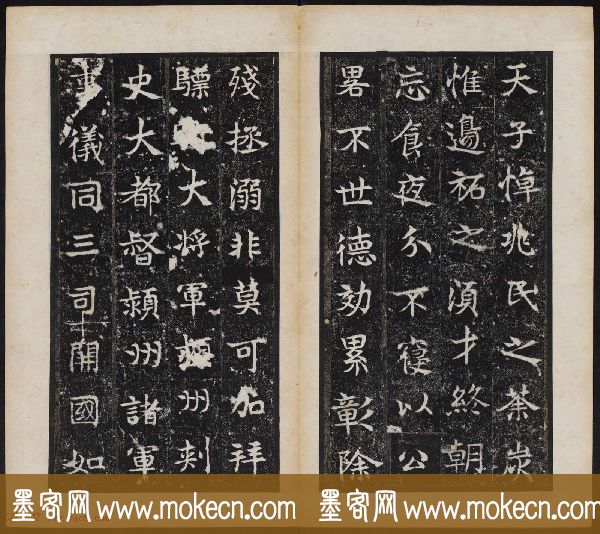 天子悼兆民之荼炭
惟邊祏之湏才終朝
忘食夜分不寢以公
畧不世德効累彰除
殘拯溺非莫可加拜
驃大將軍潁州刾
史大都督潁州諸軍
事儀同三司開國如
墨客网 www.mokecn.com 墨客网 www.mokecn.com